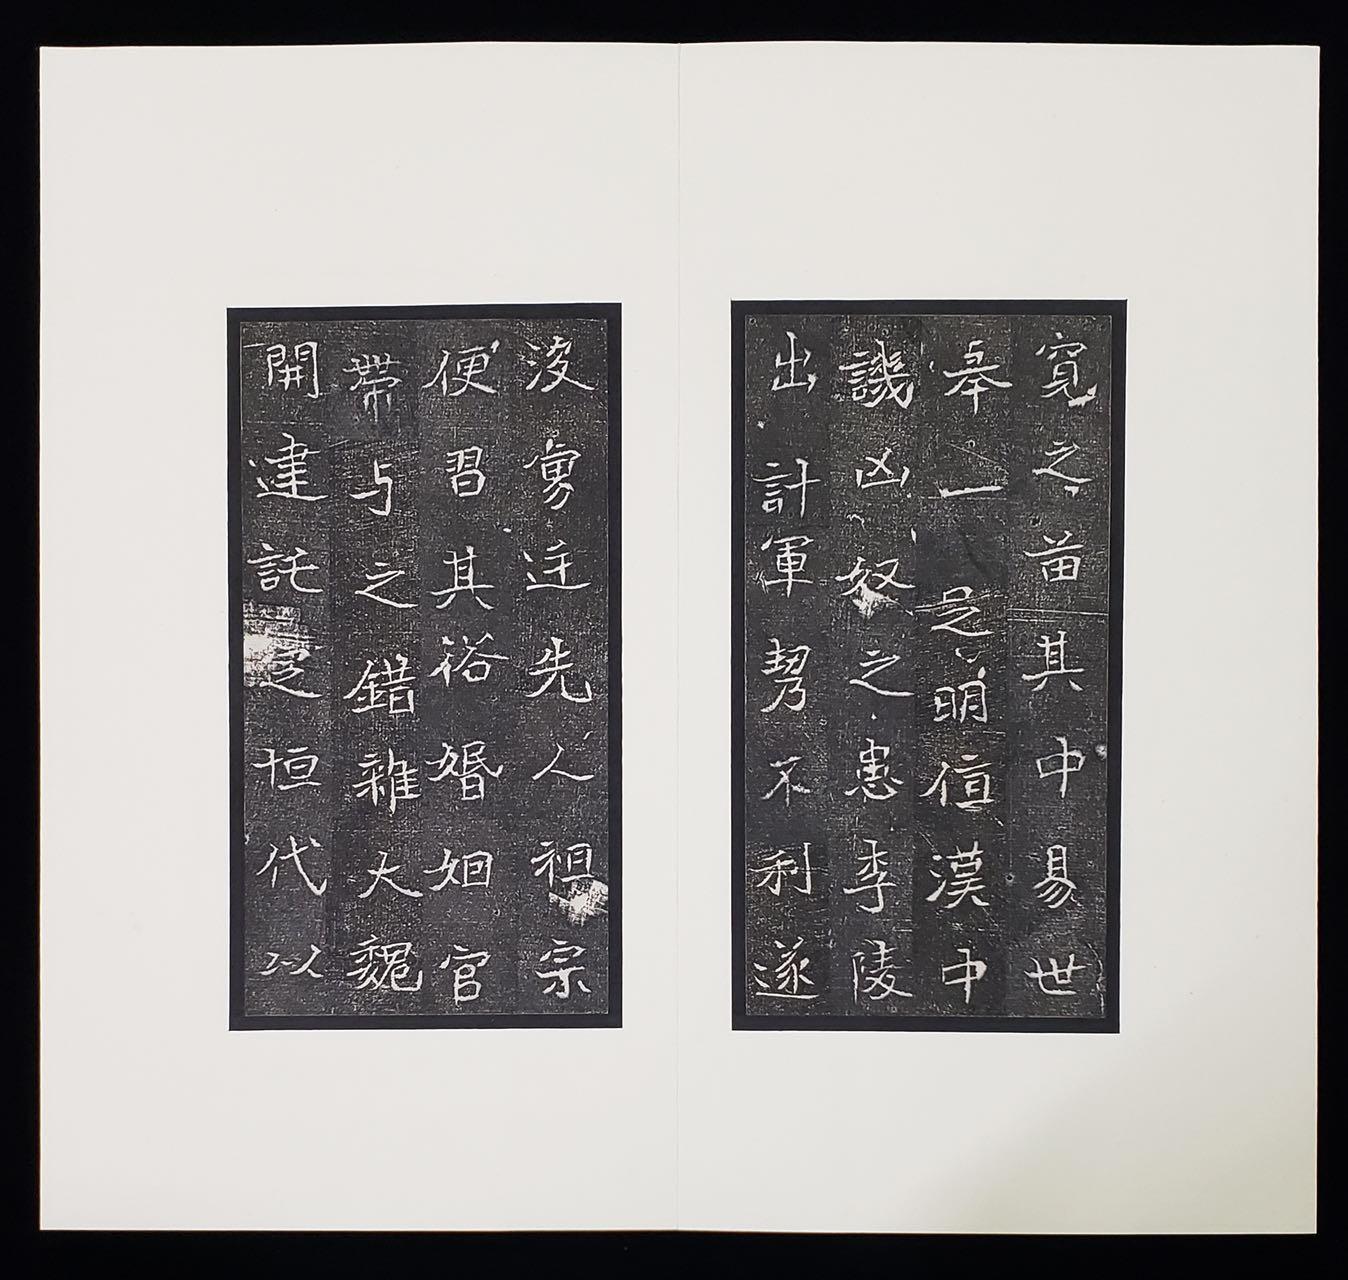 寬之苗其中易世
皋一足明值漢中
譏凶奴之患李陵
出計軍勢不利遂
沒虜迁先人祖宗
便習其裕婚姻官
帶与之錯雜大魏
開建託定恒代以